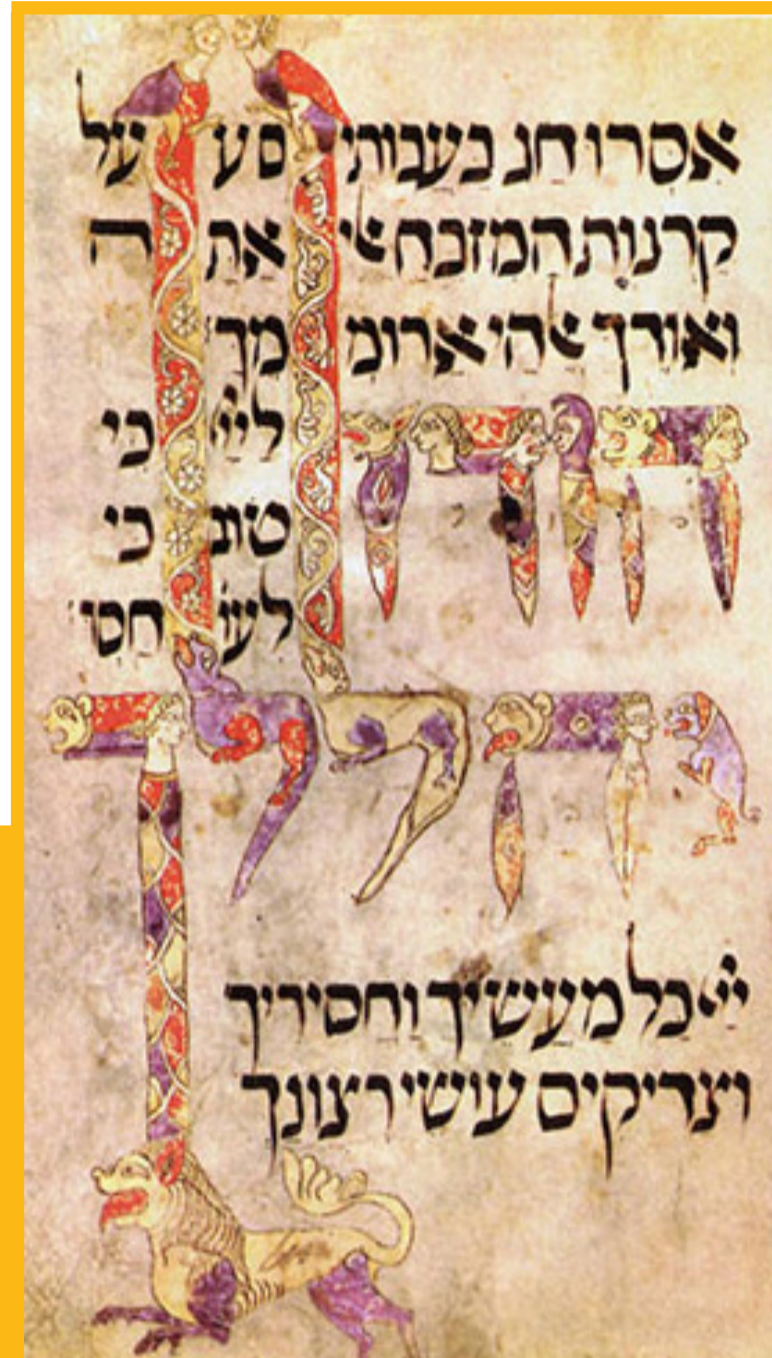 אסרו חג בעבותים ע על
קרנות המזבח ﭏי אתה
ואודך ﭏהי ארוממך
הודו ליי כי
טוב כי
לעו חסד
יהללוך
יי ﭏ כל מעשיך וחסידיך
וצדיקים עושי רצונך